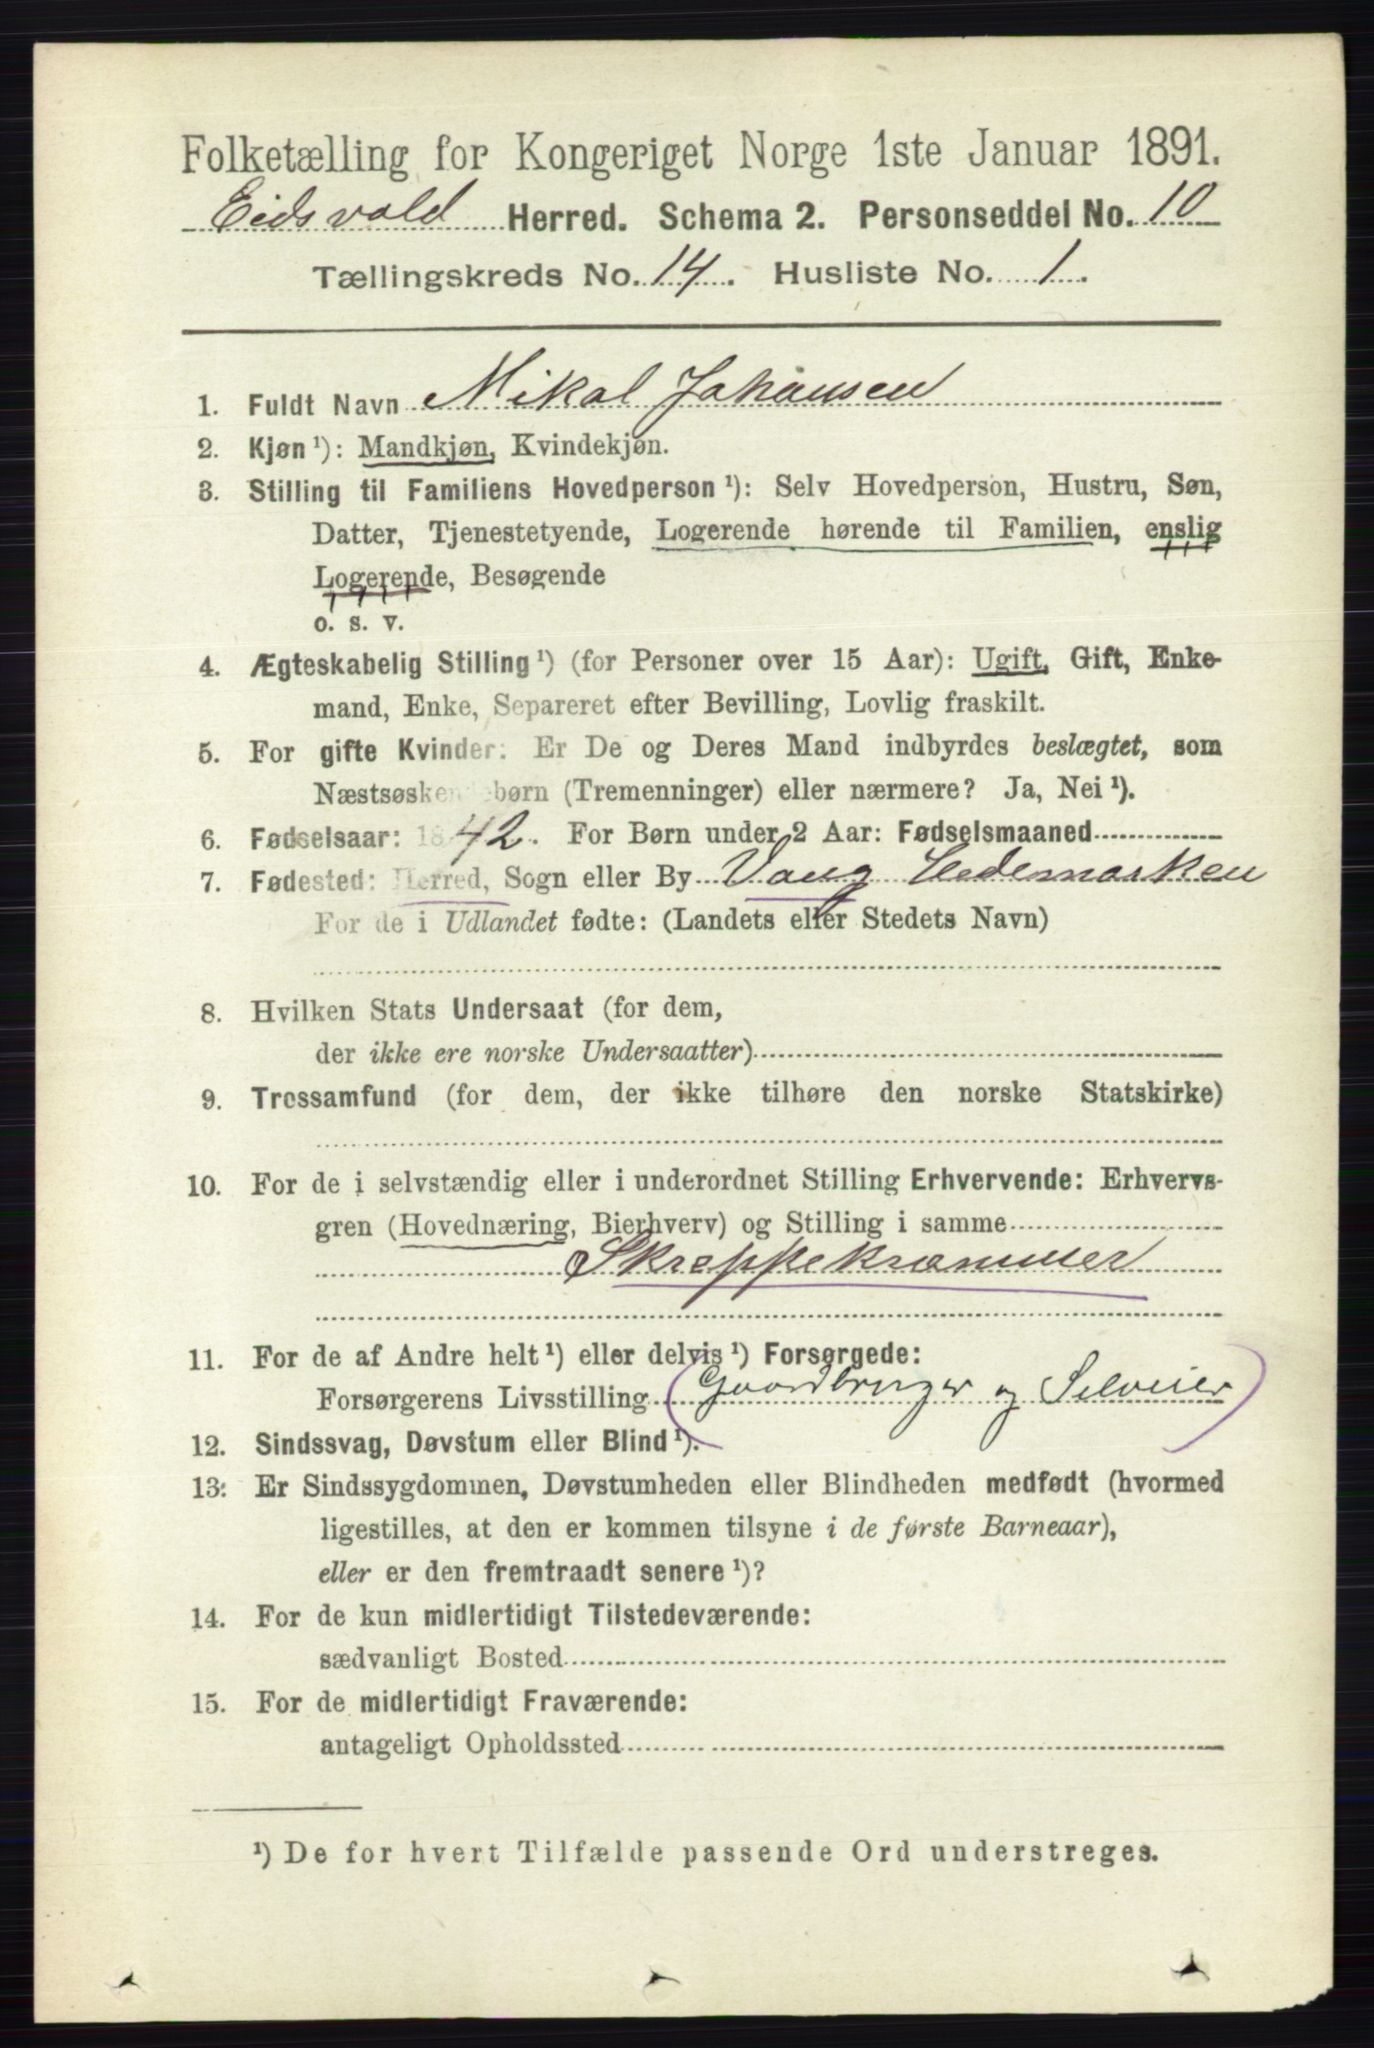 Folketælling for Kongeriget Norge 1ste Januar 1891.
Eidsvold Herred. Schema 2. Personseddel No. 10
Tællingskreds No. 14. Husliste No. 1.
1. Fuldt Navn Mikal Johansen
2. Kjøn ¹): Mandkjøn, Kvindekjøn.
3. Stilling til Familiens Hovedperson ¹): Selv Hovedperson, Hustru, Søn,
Datter, Tjenestetyende, Logerende hørende til Familien, enslig
Logerende, Besøgende
o. s. v.
4. Ægteskabelig Stilling ¹) (for Personer over 15 Aar): Ugift, Gift, Enke-
mand, Enke, Separeret efter Bevilling, Lovlig fraskilt.
5. For gifte Kvinder: Er De og Deres Mand indbyrdes beslægtet, som
Næstsøskendebørn (Tremenninger) eller nærmere? Ja, Nei ¹).
6. Fødselsaar: 1842. For Børn under 2 Aar: Fødselsmaaned
7. Fødested: Herred, Sogn eller By Vang Hedemarken
For de i Udlandet fødte: (Landets eller Stedets Navn)
8. Hvilken Stats Undersaat (for dem,
der ikke ere norske Undersaatter)
9. Trossamfund (for dem, der ikke tilhøre den norske Statskirke)
10. For de i selvstændig eller i underordnet Stilling Erhvervende: Erhvervs-
gren (Hovednæring, Bierhverv) og Stilling i samme
Skreppekræmmer
11. For de af Andre helt ¹) eller delvis ¹) Forsørgede:
Forsørgerens Livsstilling (Gaardbruger og Selveier)
12. Sindssvag, Døvstum eller Blind ¹).
13. Er Sindssygdommen, Døvstumheden eller Blindheden medfødt (hvormed
ligestilles, at den er kommen tilsyne i de første Barneaar),
eller er den fremtraadt senere ¹)?
14. For de kun midlertidigt Tilstedeværende:
sædvanligt Bosted
15. For de midlertidigt Fraværende:
antageligt Opholdssted
¹) De for hvert Tilfælde passende Ord understreges.